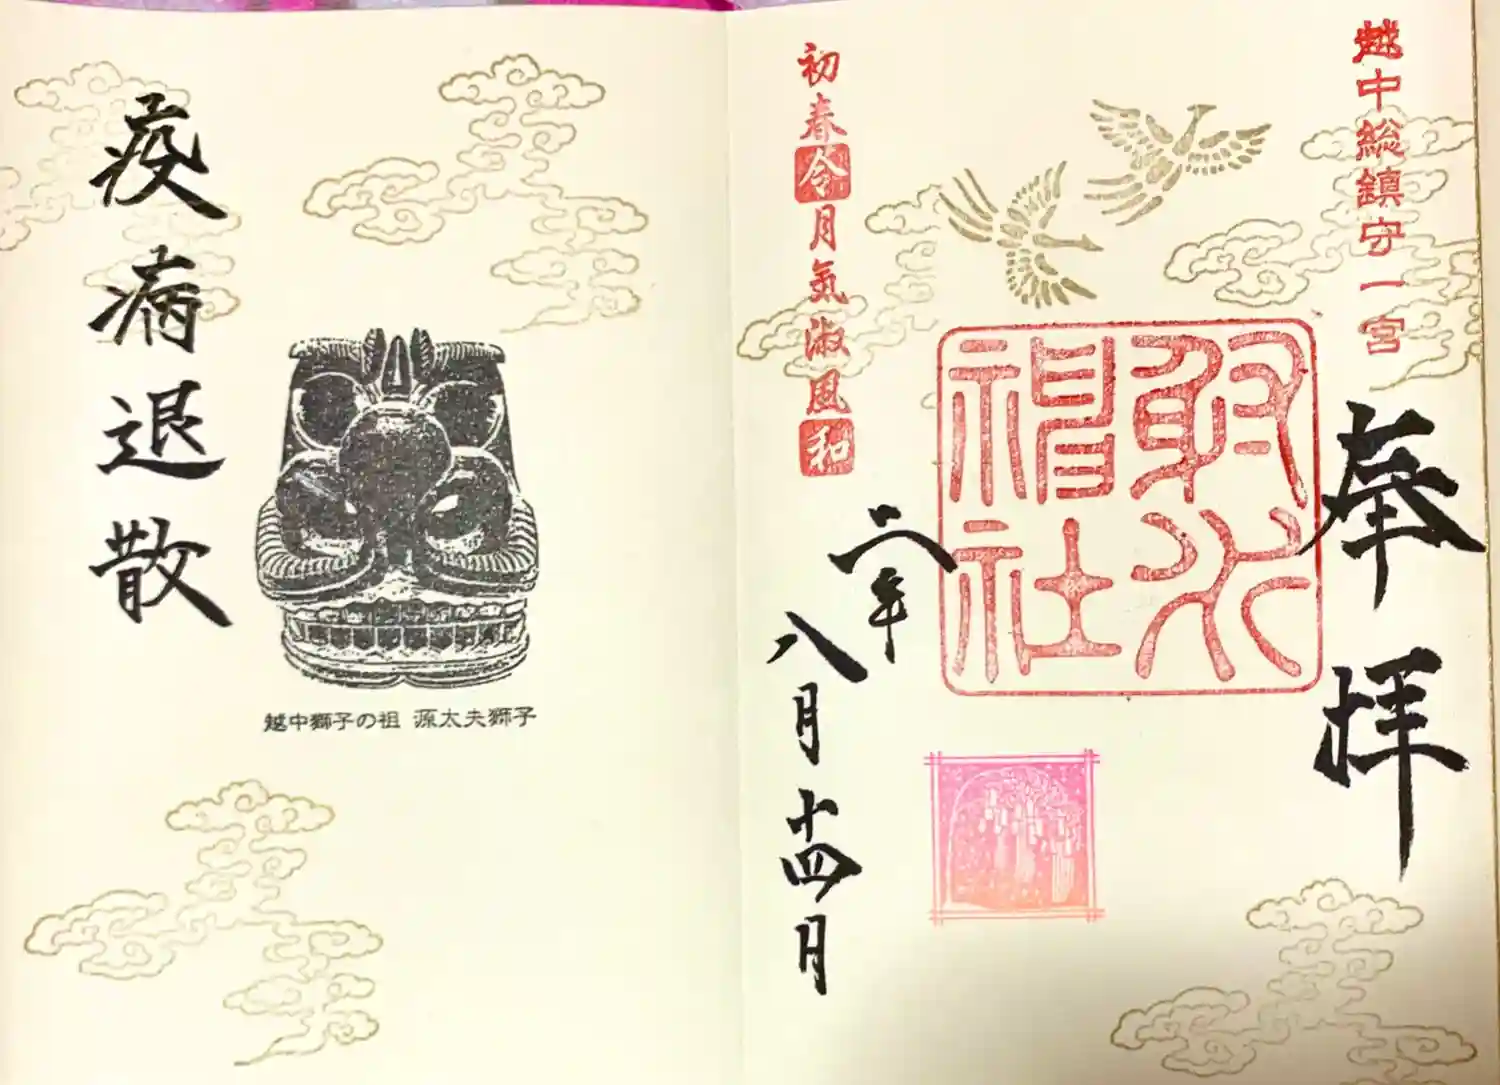 越中総鎮守一宮
奉拝
射水
神社
初春令月氣淑風和
二年
八月十四日
越中獅子の祖 源太夫獅子
疫病退散